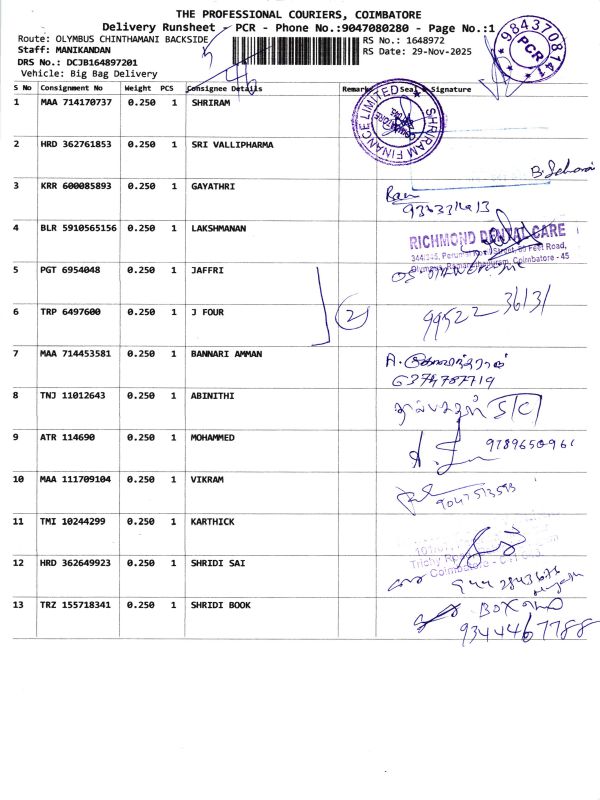 THE PROFESSIONAL COURIERS, COIMBATORE
Delivery Runsheet - PCR - Phone No.:9047080280 - Page No.:1
Route: OLYMBUS CHINTHAMANI BACKSIDE RS No.: 1648972
Staff: MANIKANDAN RS Date: 29-Nov-2025
DRS No.: DCJB164897201
Vehicle: Big Bag Delivery
9843708141
PCR
S No Consignment No Weight PCS Consignee Details Remarks Seal & Signature
1 MAA 714170737 0.250 1 SHRIRAM
SHRIRAM FINANCE LIMITED
2 HRD 362761853 0.250 1 SRI VALLIPHARMA
3 KRR 600085893 0.250 1 GAYATHRI
4 BLR 5910565156 0.250 1 LAKSHMANAN
RICHMOND DENTAL CARE
Coimbatore - 45
5 PGT 6954048 0.250 1 JAFFRI
6 TRP 6497600 0.250 1 J FOUR
2
99522 36131
7 MAA 714453581 0.250 1 BANNARI AMMAN
8 TNJ 11012643 0.250 1 ABINITHI
9 ATR 114690 0.250 1 MOHAMMED
10 MAA 111709104 0.250 1 VIKRAM
9047513593
11 TMI 10244299 0.250 1 KARTHICK
12 HRD 362649923 0.250 1 SHRIDI SAI
13 TRZ 155718341 0.250 1 SHRIDI BOOK
9344467788